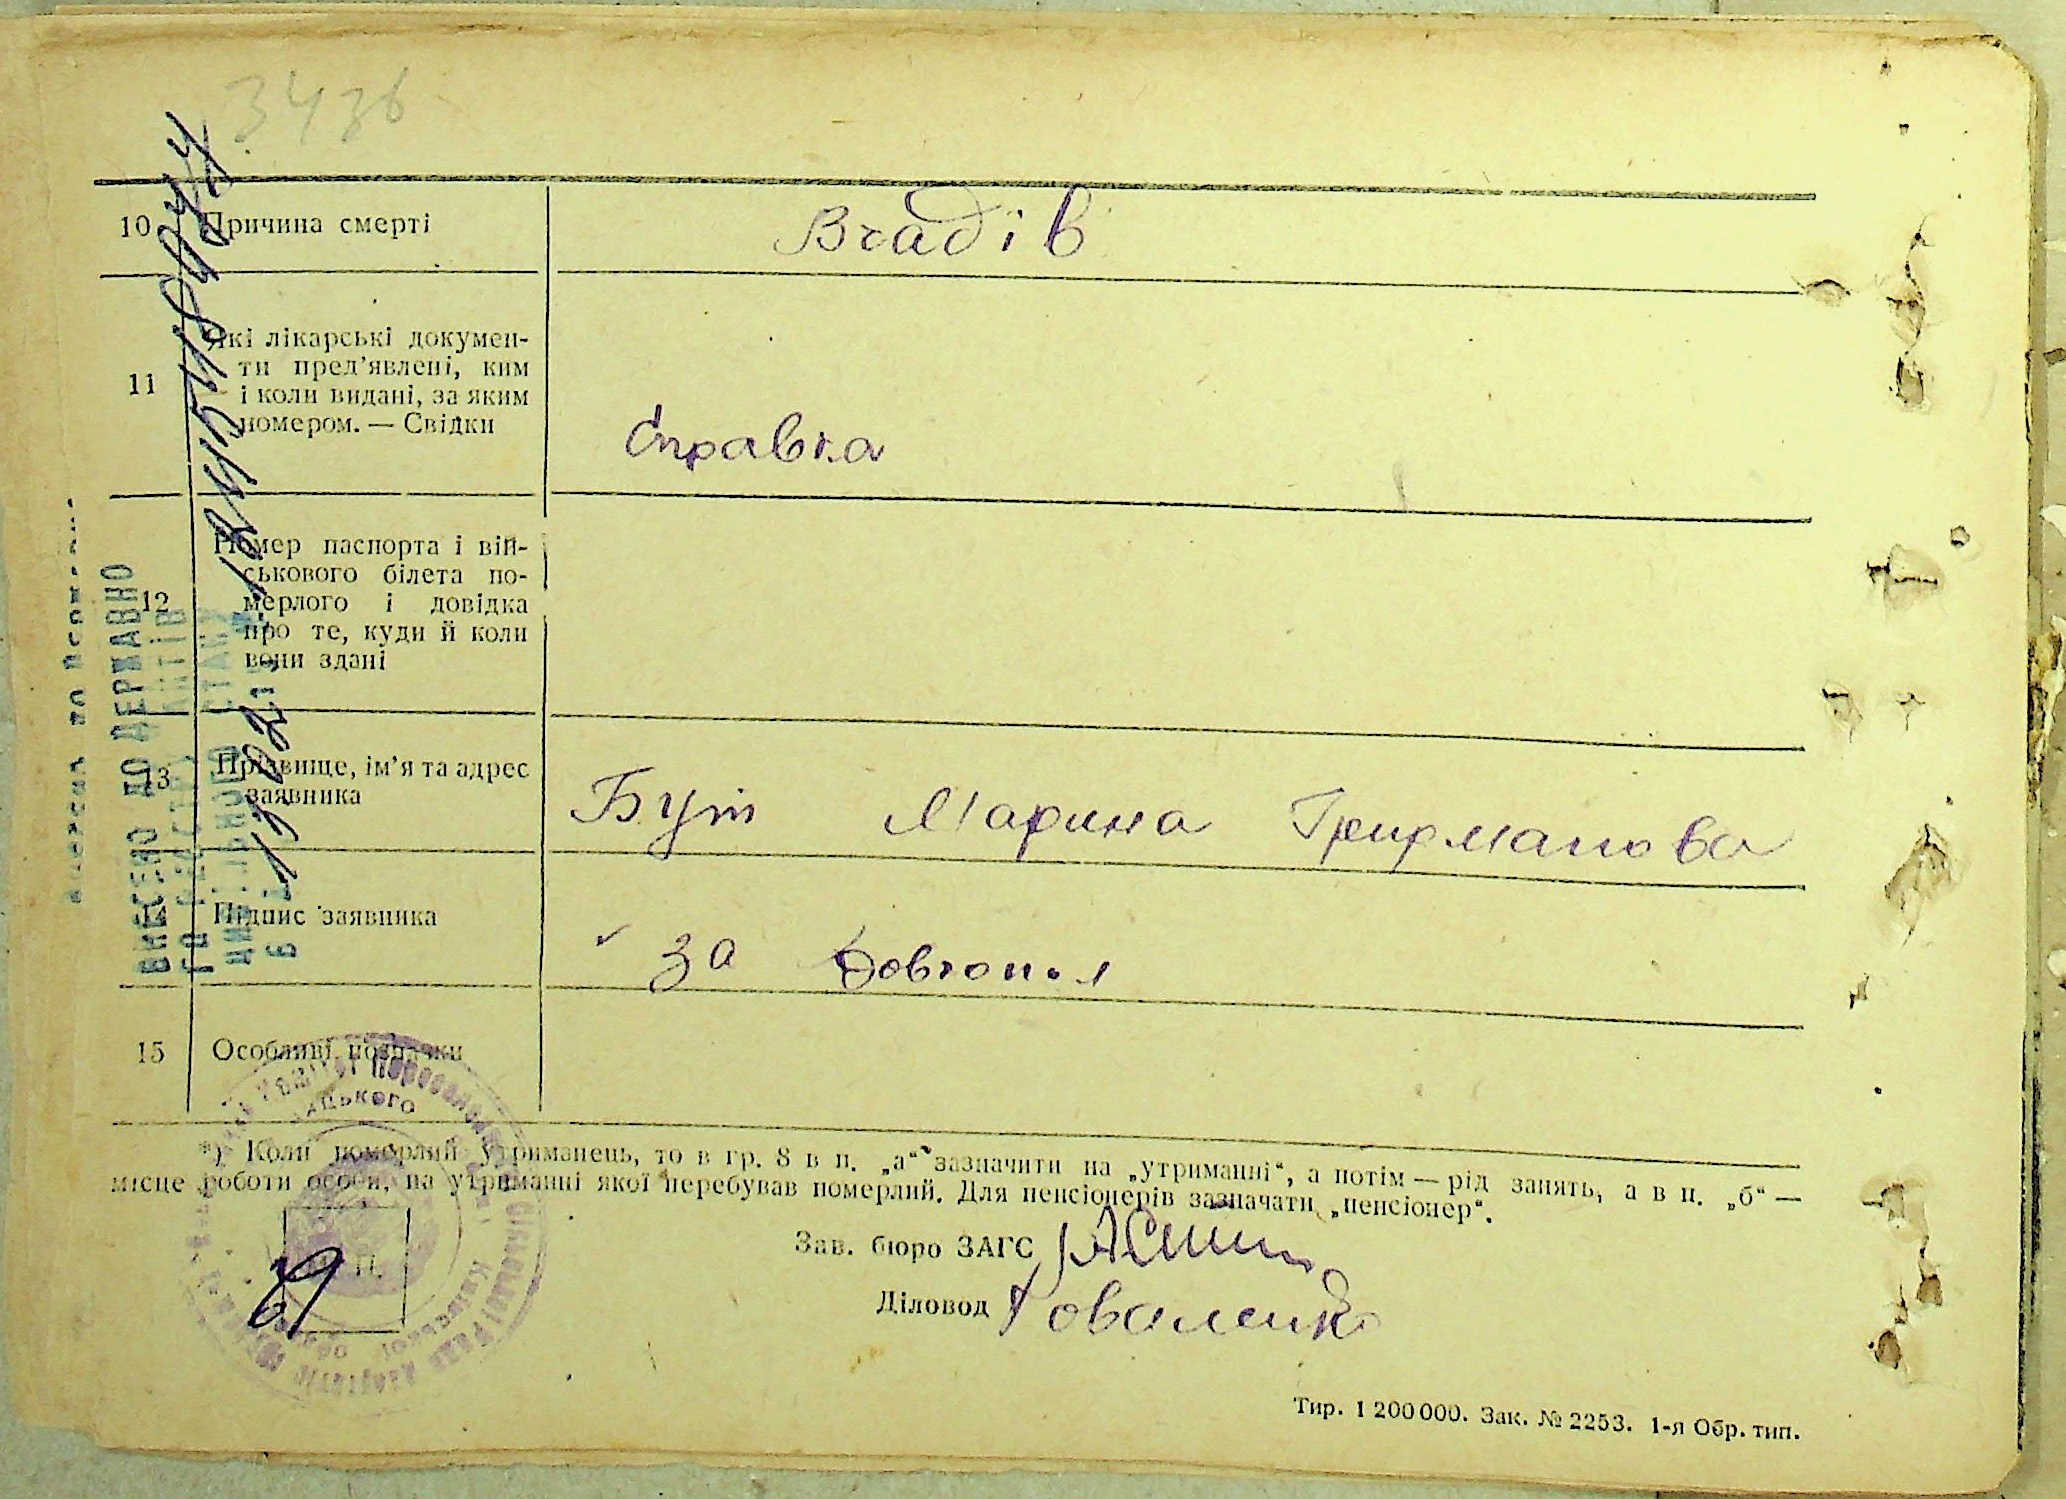 3436
10 Причина смерті Вчадів
11 Які лікарські докумен-
ти пред'явлені, ким
і коли видані, за яким
номером. — Свідки Справка
12 Номер паспорта і вій-
ськового білета по-
мерлого і довідка
про те, куди й коли
вони здані
13 Прізвище, ім'я та адрес
заявника Бут Марина
14 Підпис заявника за
15 Особливі позначки
*) Коли померлий утриманець, то в гр. 8 в п. „а" зазначити на „утриманні", а потім — рід занять, а в п. „б" —
місце роботи особи, на утриманні якої перебував померлий. Для пенсіонерів зазначати „пенсіонер".
Зав. бюро ЗАГС
Діловод Коваленко
М. П.
Тир. 1 200 000. Зак. № 2253. 1-я Обр. тип.
ВНЕСЕНО ДО ДЕРЖАВНО
ГО РЕЄСТРУ АКТІВ
ЦИВІЛЬНОГО СТАНУ